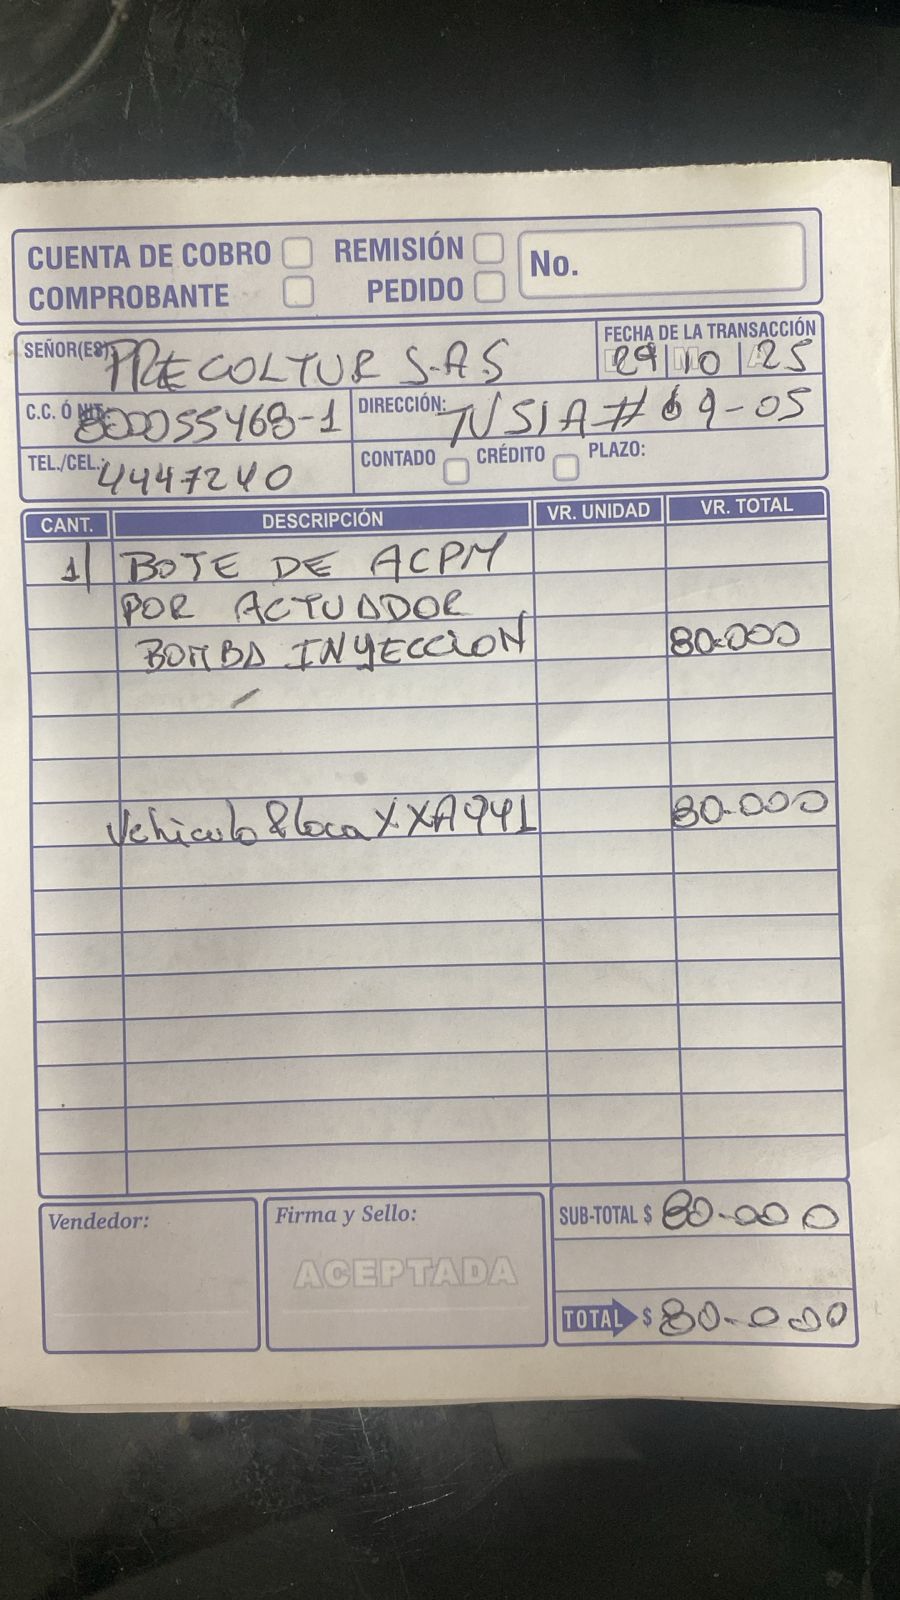 CUENTA DE COBRO REMISIÓN No.
COMPROBANTE PEDIDO
SEÑOR(ES): PRECOLTUR S.A.S
FECHA DE LA TRANSACCIÓN
29 10 25
C.C. Ó NIT: 800055468-1
DIRECCIÓN: TV 51A # 69-05
TEL./CEL.: 4447240
CONTADO CRÉDITO PLAZO:
CANT. DESCRIPCIÓN VR. UNIDAD VR. TOTAL
1 BOTE DE ACPM
POR ACTUADOR
BOMBA INYECCION 80.000
Vehiculo Placa XXA941 80.000
Vendedor:
Firma y Sello:
ACEPTADA
SUB-TOTAL $ 80.000
TOTAL $ 80.000